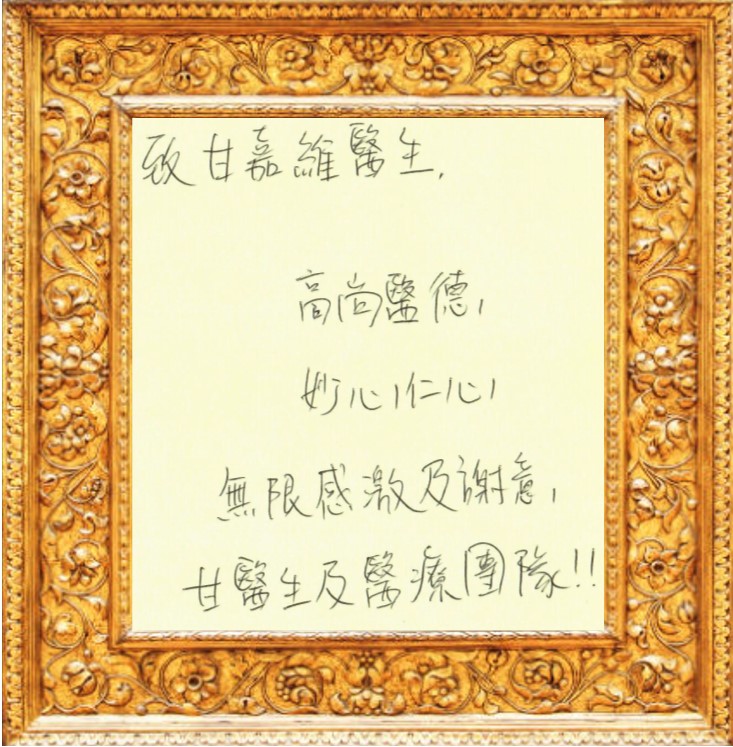 致甘嘉維醫生,
高尚醫德,
妙心仁心,
無限感激及謝意,
甘醫生及醫療團隊!!